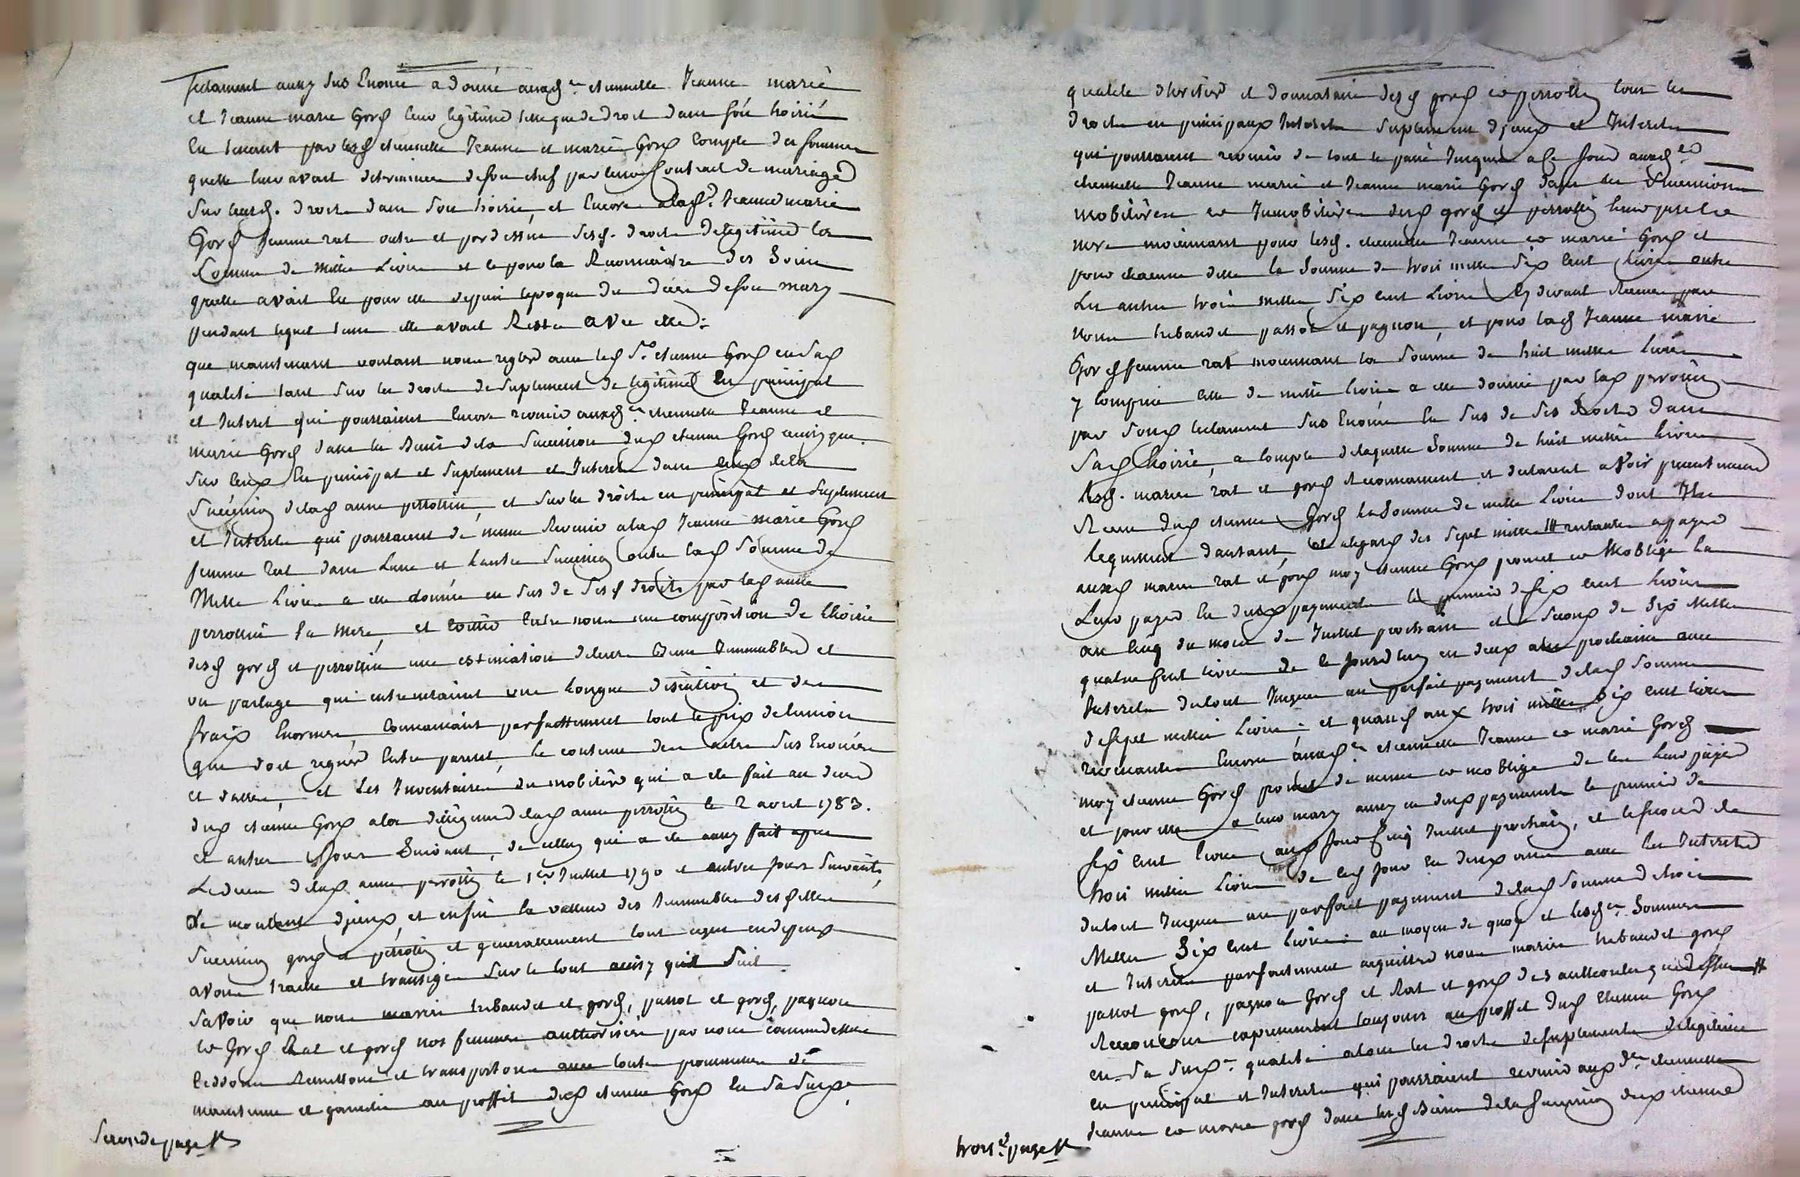 testament aussy sus Enoncé a donné auxd.es etiennette Jeanne marie
et Jeanne marie Gorg leur legitime telle que de droit dans son hoirie
En tenant par lesd etiennette Jeanne et marie Gorg Compte des sommes
quelle leur avait de son chef par leurs Contrats de mariage
Sur leursd. droits dans son hoirie, et Encore a lad. Jeanne marie
Gorg femme rat outre et par dessus sesd. droits de legitime la
Somme de Mille Livres et ce pour la Recompense des Soins
quelle avait Eu pour elle depuis lepoque du décès de son mary
pendant lequel tems elle avait Resté avec elle :
que maintenant voulant nous regler avec led S.r etienne Gorg en sad
qualité tant sur les droits de suplement de legitime En principal
et Interet qui pourraient Encore revenir auxd.es etiennette Jeanne et
marie Gorg dans les Biens de la Succession dud etienne Gorg ainsy que
sur ceux En principal et suplement et Interets dans ceux de la
Succession delad anne perrottin, et sur les droits en principal et suplement
et Interets qui pourraient de meme Revenir a lad Jeanne marie Gorg
femme Rat dans Lune et Lautre Succession outre lad Somme de
Mille Livres a elle donnée en sus de sesd droits par lad anne
perrottin sa mere, et Entre nous une composition de lhoirie
desd gorg et perrottin une estimation de leurs Biens Immeubles et
un partage qui entraineraient une longue discution et des
fraix Enormes, Connaissant parfaittement tout le prix de lunion
qui doit regner Entre parents, le contenu des actes sus Enoncés
et dattés, et Les Inventaires du mobilier qui a ete fait au décès
dud etienne Gorg a la delad anne perrottin le 2 avril 1783.
et autres Jours Suivants, de celluy qui a ete aussy fait apres
Le deces delad anne perrottin le 1er Juillet 1790 et autres Jours Suivants,
Le montant diceux, et enfin la valleur des Immeubles desdittes
Succession gorg et perrottin et generallement tout
avons traitté et transigé sur le tout ainsy quil suit.
Savoir que nous mariés trebaudet et gorg, passot et gorg, pagnon
et Gorg Rat et gorg nos femmes authorisées par nous comme dessus
Cedons Remettons et transportons avec toute promesse de
maintenue et garantie au proffit dud etienne Gorg En sa susd.e
Seconde page
qualité dheritier et donnataire desd gorg et perrottin tous les
droits en principaux Interets suplement diceux et Interets
qui pourraient revenir de tout le passé Jusques a ce Jour auxd.es
etiennette Jeanne marie et Jeanne marie Gorg dans les Successions
mobilières et Immobilières desd gorg et perrottin leurs pere et
mere moiennant pour lesd. etiennette Jeanne et marie Gorg et
pour chacune delle la Somme de trois mille Six Cent Livres outre
Les autres trois mille Six cent Livres Cy devant Recues par
nous trebaudet passot et pagnon, et pour lad Jeanne marie
Gorg femme rat moiennant la Somme de huit mille Livres
y Compris celle de mille Livres a elle donnée par lad perrottin
par Son testament Sus Enoncé En Sus de Ses droits dans
Sad hoirie, a Compte de laquelle Somme de huit mille Livres
lesd. mariés rat et gorg Reconnaissent et declarent avoir presentement
Recue dud etienne Gorg la Somme de mille Livres dont Ils
le quittent dautant, et alegard des Sept mille # restantes a payer
auxd mariés rat et gorg moy etienne Gorg promet et Moblige La
Leur payer En deux payements le premier de six cent Livres
au cinq du mois de Juillet prochain et le Second de Six Mille
quatre Cent Livres de ce Jourdhuy en deux ans prochains avec
Interets du tout Jusques au parfait payement delad Somme
de Sept mille Livres ; et quand aux trois mille Six cent livres
revenantes Encore auxd.es etiennette Jeanne et marie Gorg
moy etienne Gorg promet de meme et moblige de les Leur payer
et pour elles a leurs marys aussy en deux payements le premier de
Six Cent livres aud Jour Cinq Juillet prochain, et le second de
trois mille Livres de ced Jour En deux ans avec les Interets
du tout Jusques au parfait payement delad Somme de trois
Mille Six Cent Livres : au moyen de quoy et lesd.es Sommes
et Interets parfaitement acquittés nous mariés trebaudet gorg
passot gorg, pagnon Gorg et Rat et gorg des authorités que dessus #
Renoncons expressement toujours au proffit dud Etienne Gorg
en Sa Susd.e qualité a tous les droits de suplements de legitime
en principal et Interets qui pourraient revenir auxd.es etiennette
Jeanne et marie gorg dans lesd Biens delad succession dud etienne
trois.e page